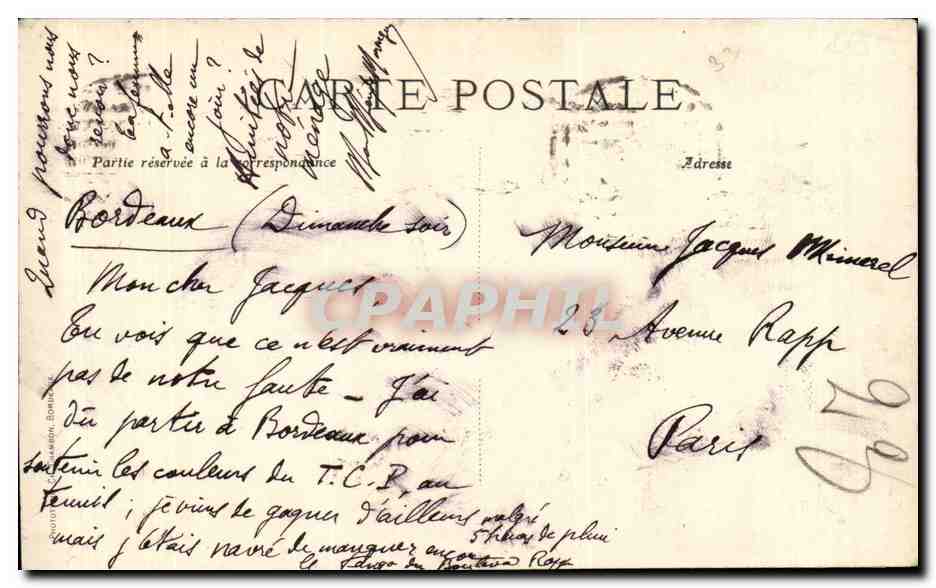 CARTE POSTALE
Partie réservée à la correspondance
Adresse
Bordeaux (Dimanche soir)
Mon cher Jacques,
Tu vois que ce n'est vraiment
pas de notre faute – J'ai
dû partir à Bordeaux pour
soutenir les couleurs du T.C.P., au
tennis ; je viens de gagner d'ailleurs malgré
5 heures de pluie
mais j'étais navré de manquer encore
le Tango du Rapp
Quand pourrons nous
donc nous
revoir ?
a-t-elle
encore un
jour ?
Amitiés de
notre
ménage
Monsieur Jacques Mimerel
23 Avenue Rapp
Paris
CPAPHIL
BORDEAUX